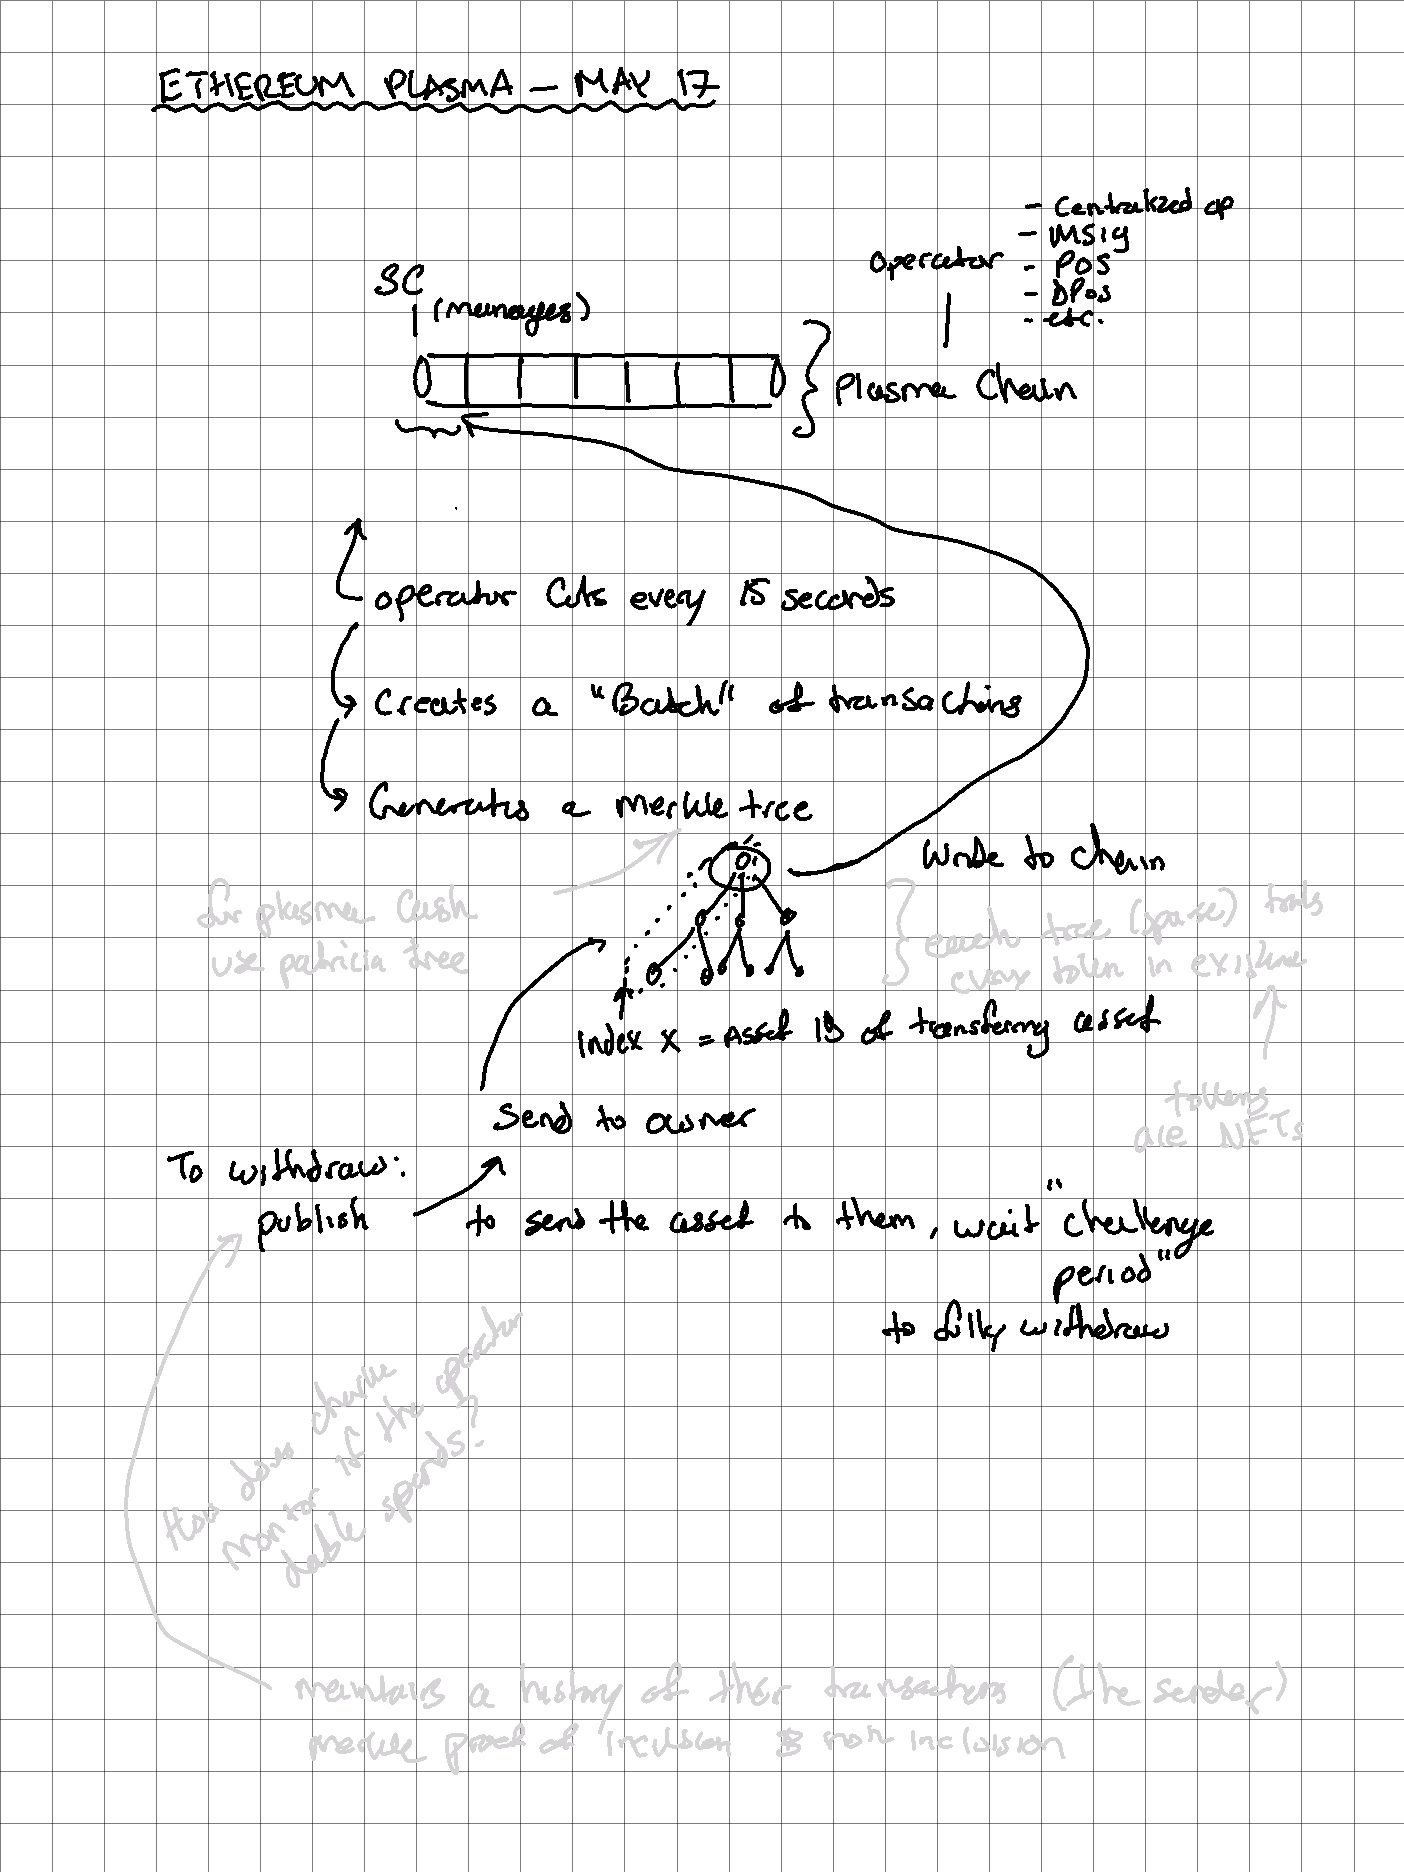 ETHEREUM PLASMA — MAY 17
- Centralized op
- MSig
operator - POS
- DPOS
- etc.
SC
(manages)
Plasma Chain
operator Cuts every 15 seconds
Creates a "Batch" of transactions
Generates a merkle tree
Write to chain
for plasma Cash
use patricia tree
each tree (sparse)
every token in existence
Index X = Asset ID of transferring asset
tokens
are NFTs
Send to owner
To withdraw:
publish to send the asset to them, wait "challenge
period"
to fully withdraw
How does charlie
monitor if the operator
double spends?
maintains a history of their transactions (the sender)
merkle proof of inclusion & non inclusion